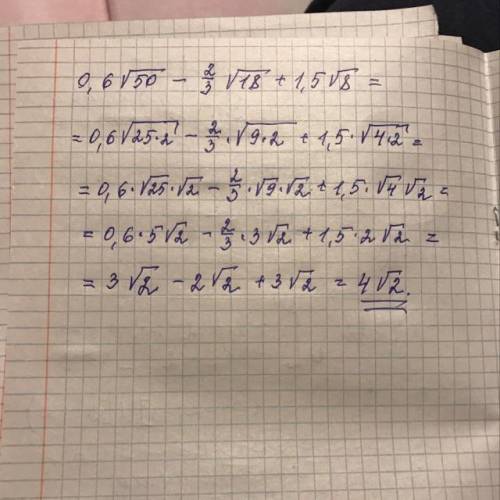 0,6√50 − 2/3 √18 + 1,5√8 =
= 0,6√25·2 − 2/3·√9·2 + 1,5·√4·2 =
= 0,6·√25·√2 − 2/3·√9·√2 + 1,5·√4√2 =
= 0,6·5√2 − 2/3·3√2 + 1,5·2√2 =
= 3√2 − 2√2 + 3√2 = 4√2.